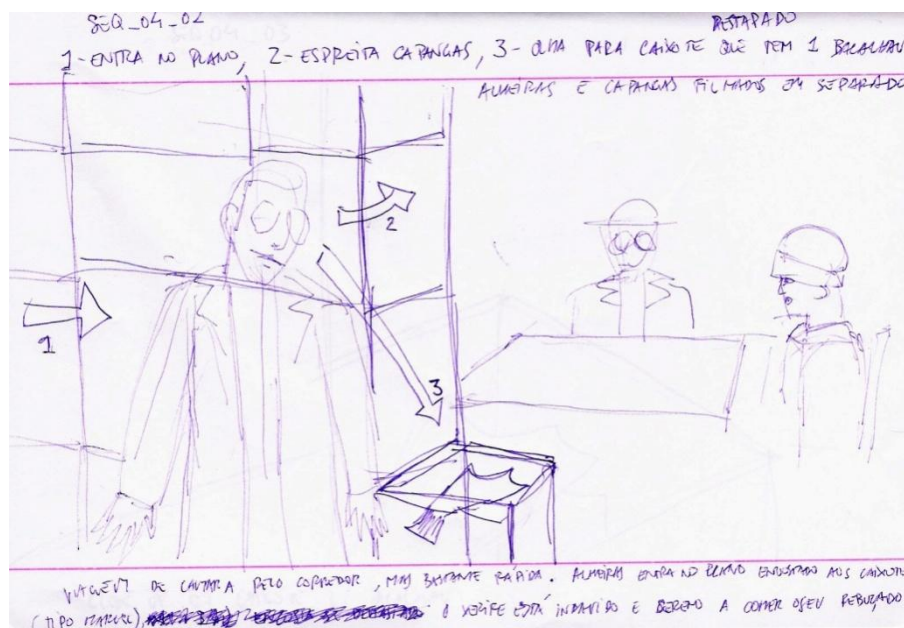 SEQ_04_02
DESTAPADO
1-ENTRA NO PLANO, 2-ESPREITA CAPANGAS, 3-OLHA PARA CAIXOTE QUE TEM 1 BACALHAU
ALMEIRAS E CAPANGAS FILMADOS EM SEPARADO
2
1
3
DE CAMARA PELO CORREDOR, MAS BASTANTE RÁPIDA. ALMEIRAS ENTRA NO PLANO ENCOSTADO AOS CAIXOTE
(TIPO O XERIFE ESTÁ IMPAVIDO E SERENO A COMER O SEU REBUÇADO